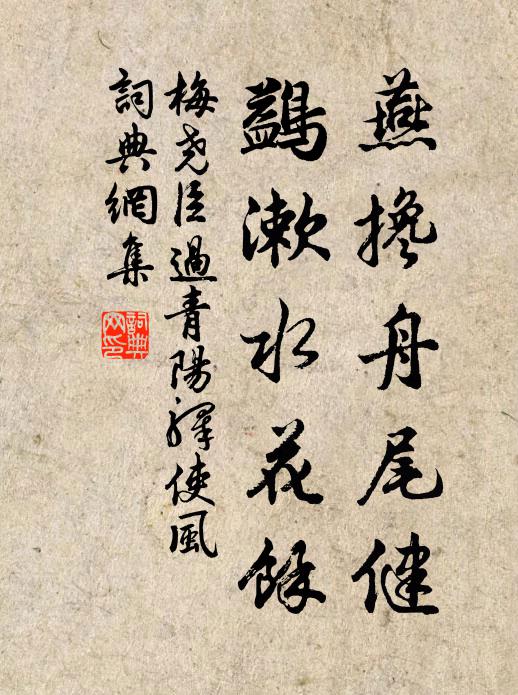 燕搀舟尾健
鷁漱水花餘
梅堯臣過青陽驛使風
詞典網集
詞典
网印